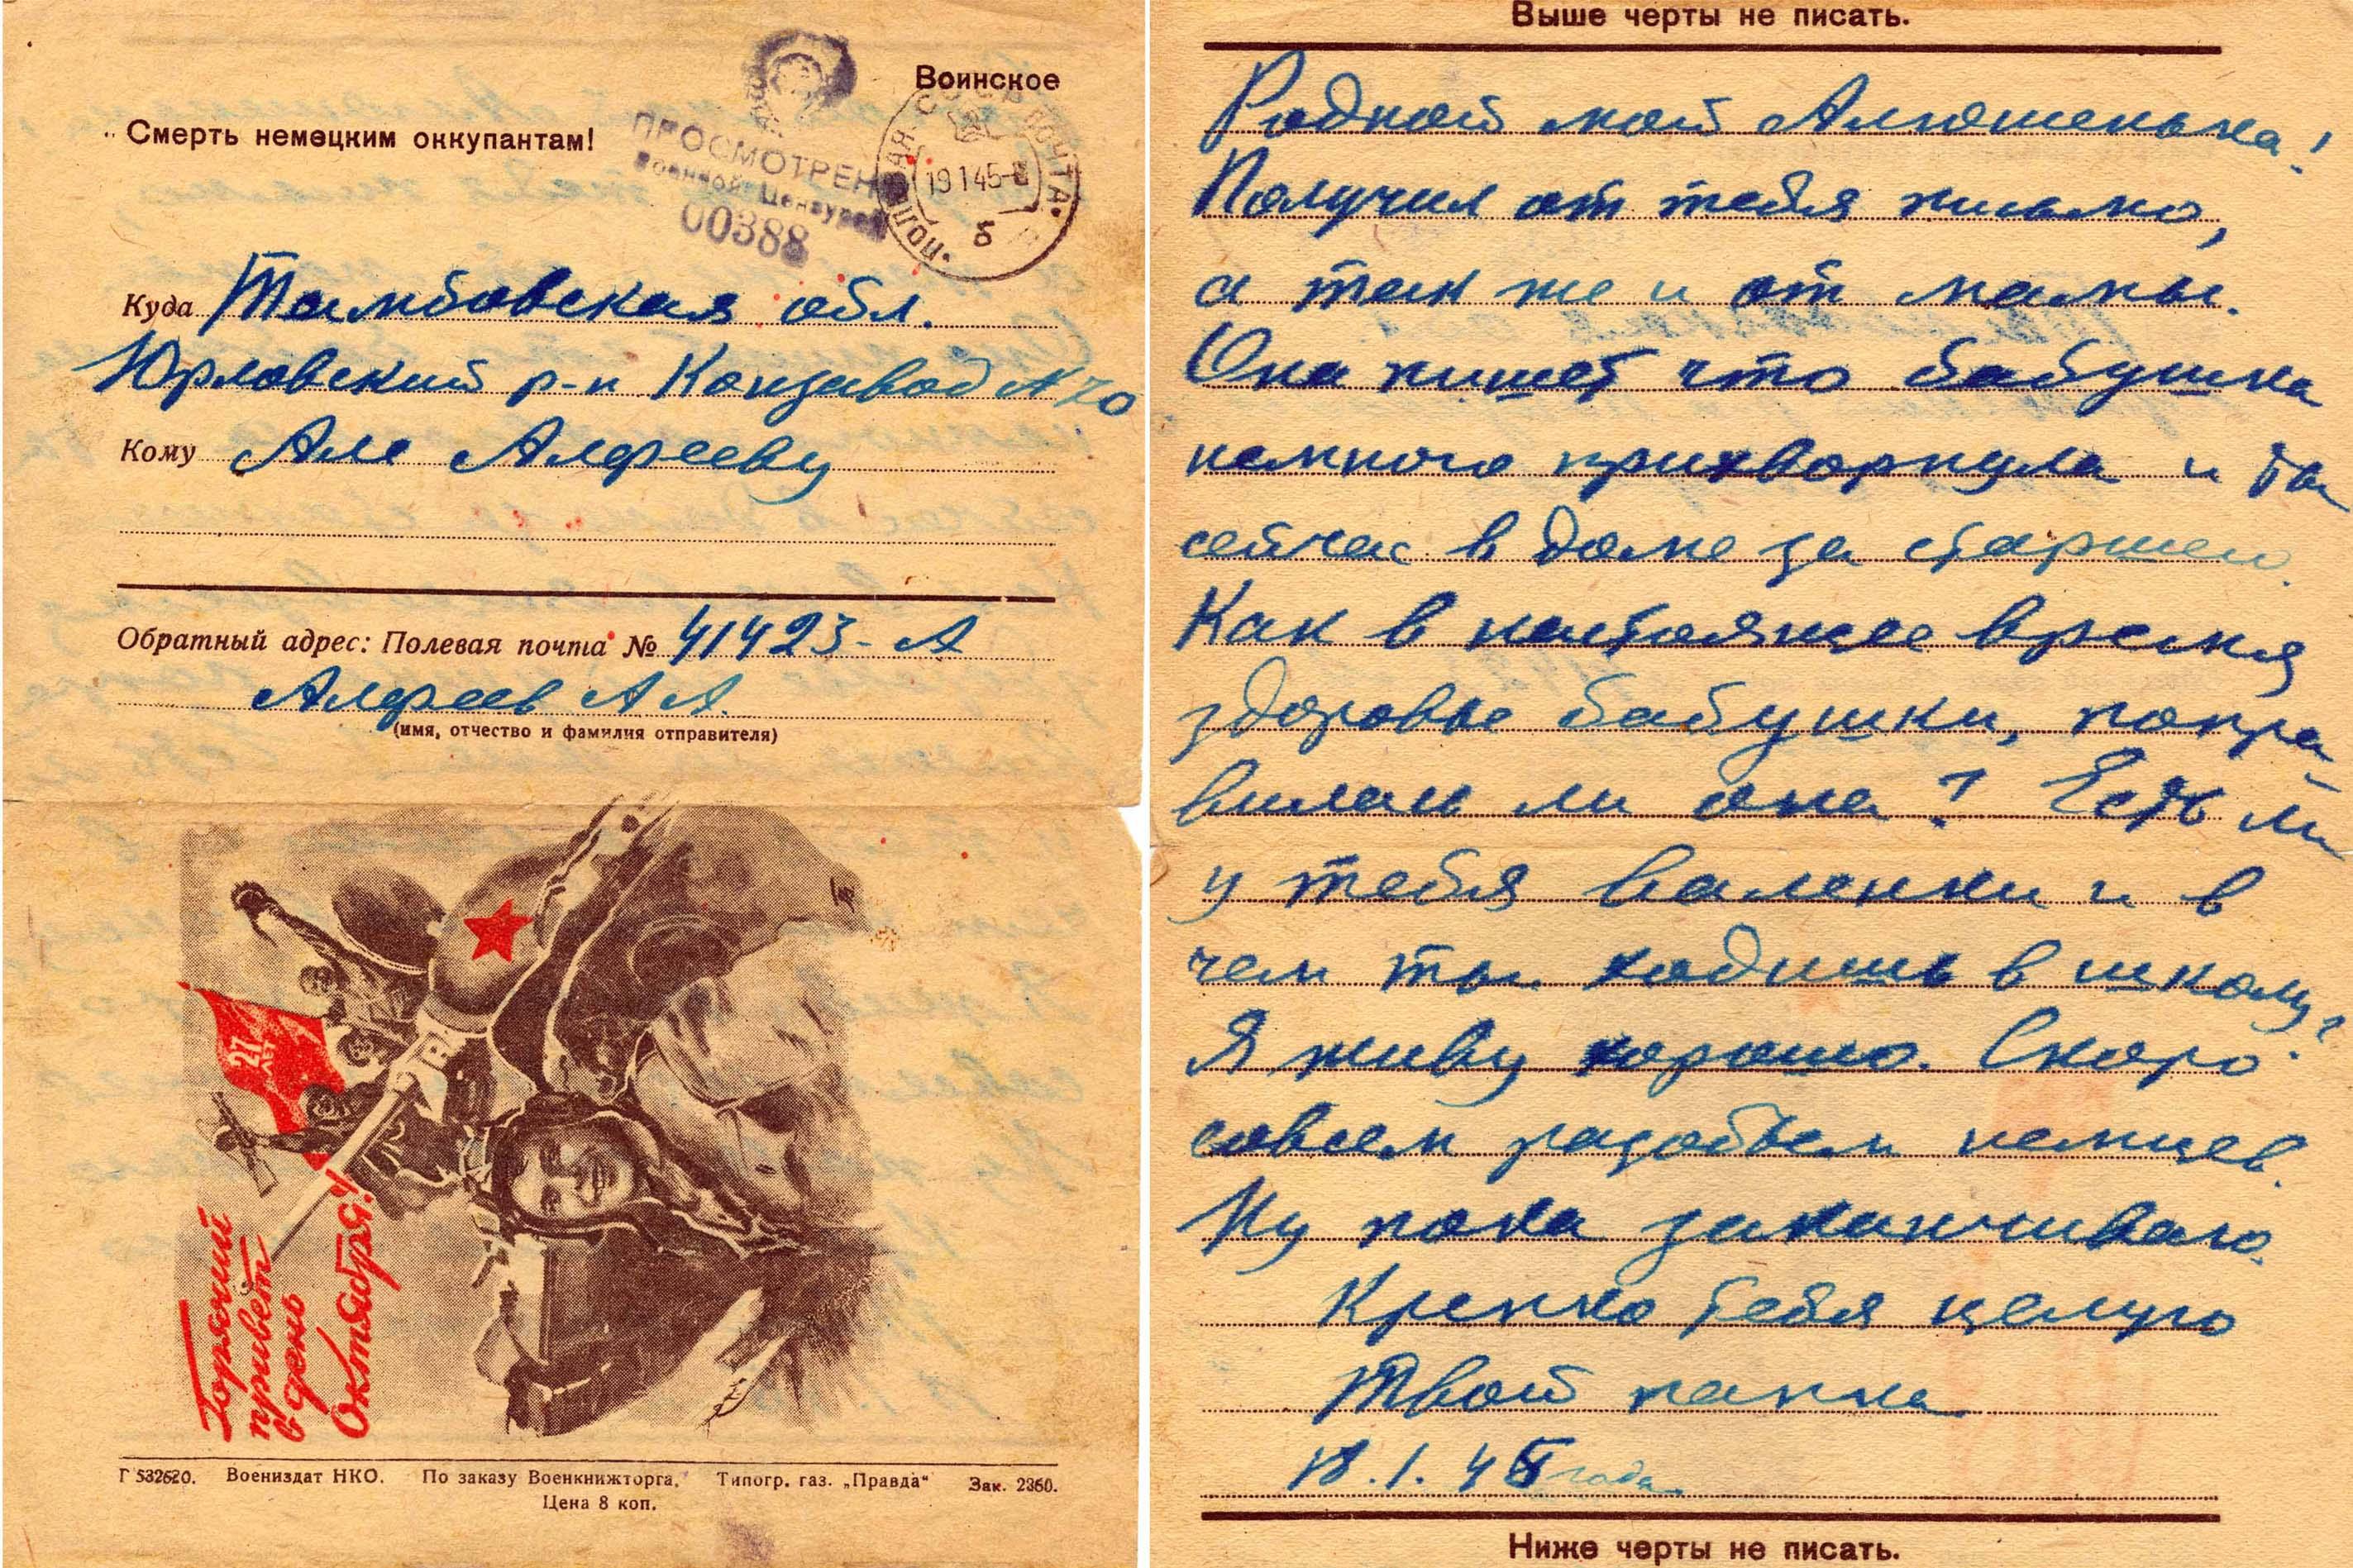 Воинское
Смерть немецким оккупантам!
ПРОСМОТРЕНО
Военной Цензурой
00388
ПОЛЕВАЯ ПОЧТА
19 1 45
б
Куда Тамбовская обл.
Юрловский р-н Конзавод № 70
Кому Але Алфееву
Обратный адрес: Полевая почта № 41423-А
Алфеев А А.
(имя, отчество и фамилия отправителя)
27
ЛЕТ
Горячий
привет
в день
Октября!
Г 532620. Воениздат НКО. По заказу Военкнижторга. Типогр. газ. „Правда“ Зак. 2360.
Цена 8 коп.
Выше черты не писать.
Родной мой Алюшенька!
Получил от тебя письмо,
а так же и от мамы.
Она пишет что бабушка
немного прихворнула и ты
сейчас в доме за старшего.
Как в настоящее время
здоровье бабушки, попра-
вилась ли она? Есть ли
у тебя валенки и в
чем ты ходишь в школу?
Я живу хорошо. Скоро
совсем разобьем немцев.
Ну пока заканчиваю.
Крепко тебя целую
Твой папка
18.1.45 года.
Ниже черты не писать.